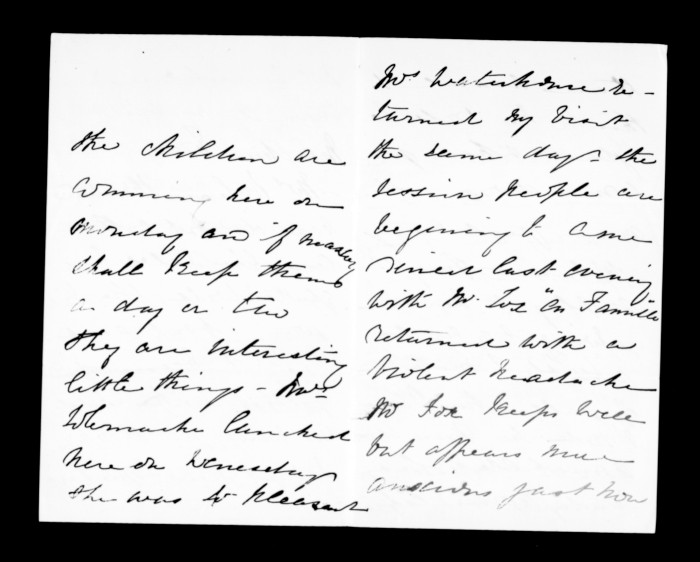 the children are
comming here on
monday and if
shall keep them
a day or two
they are interesting
little things - Mrs
lunched
here on Wenesday
she was so pleasant
Mrs Waterhouse re-
turned my visit
the same day - the
session people are
begining to come
dined last evening
with Mr Fox "en Famille"
returned with a
violent headache
Mr Fox keeps well
but appears
anxious just now